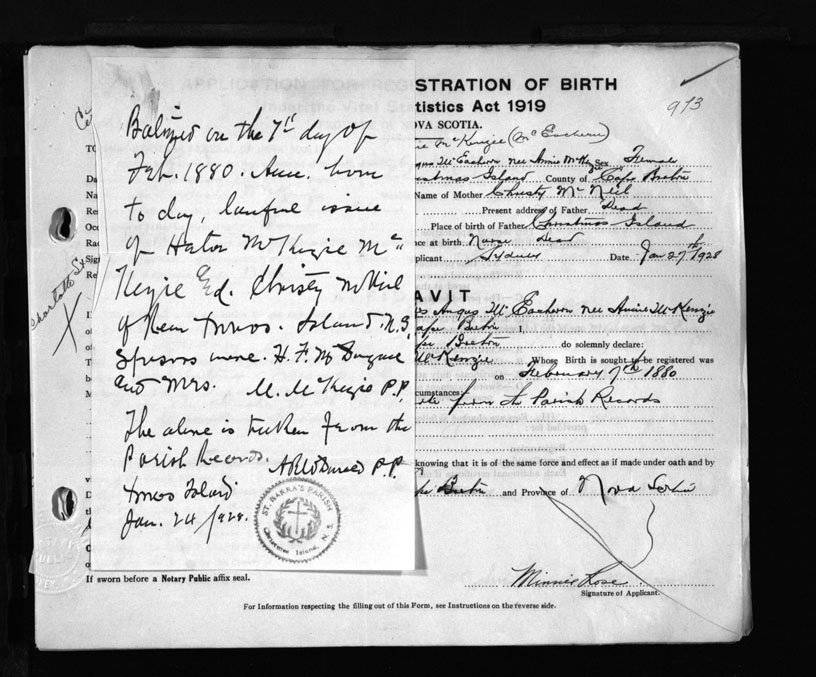 Baptized on the 7th day of
Feb. 1880. Ann. born
to day, lawful issue
of Hector McKenzie Mc
Kenzie Ed. Christy McNeil
of Near Xmas. Island. N.S,
Sponsors were. H. F. McDougall
and Mrs. M. McKenzie P.P.
The above is taken from the
Parish Records.
P.P.
Xmas Island
Jan. 24/1928.
ST. BARRA'S PARISH
Christmas Island, N. S.
STRATION OF BIRTH
tistics Act 1919
OVA SCOTIA.
913
McKenzie (McEachern)
McEachern nee Annie McK Sex Female
stmas Island County of Cape Breton
Name of Mother Christy McNeil
Present address of Father Dead
Place of birth of Father Christmas Island
nce at birth. Nurse Dead
plicant Sydney Date Jan 27th 1928
AVIT
Angus McEachern nee Annie McKenzie
ape Breton I,
Breton do solemnly declare:
McKenzie Whose Birth is sought to be registered was
on February 7th 1880
cumstances
from the Parish Records
knowing that it is of the same force and effect as if made under oath and by
Breton and Province of Nova Scotia
Charlotte St
X
If sworn before a Notary Public affix seal.
Minnie Rose
Signature of Applicant.
For Information respecting the filling out of this Form, see Instructions on the reverse side.